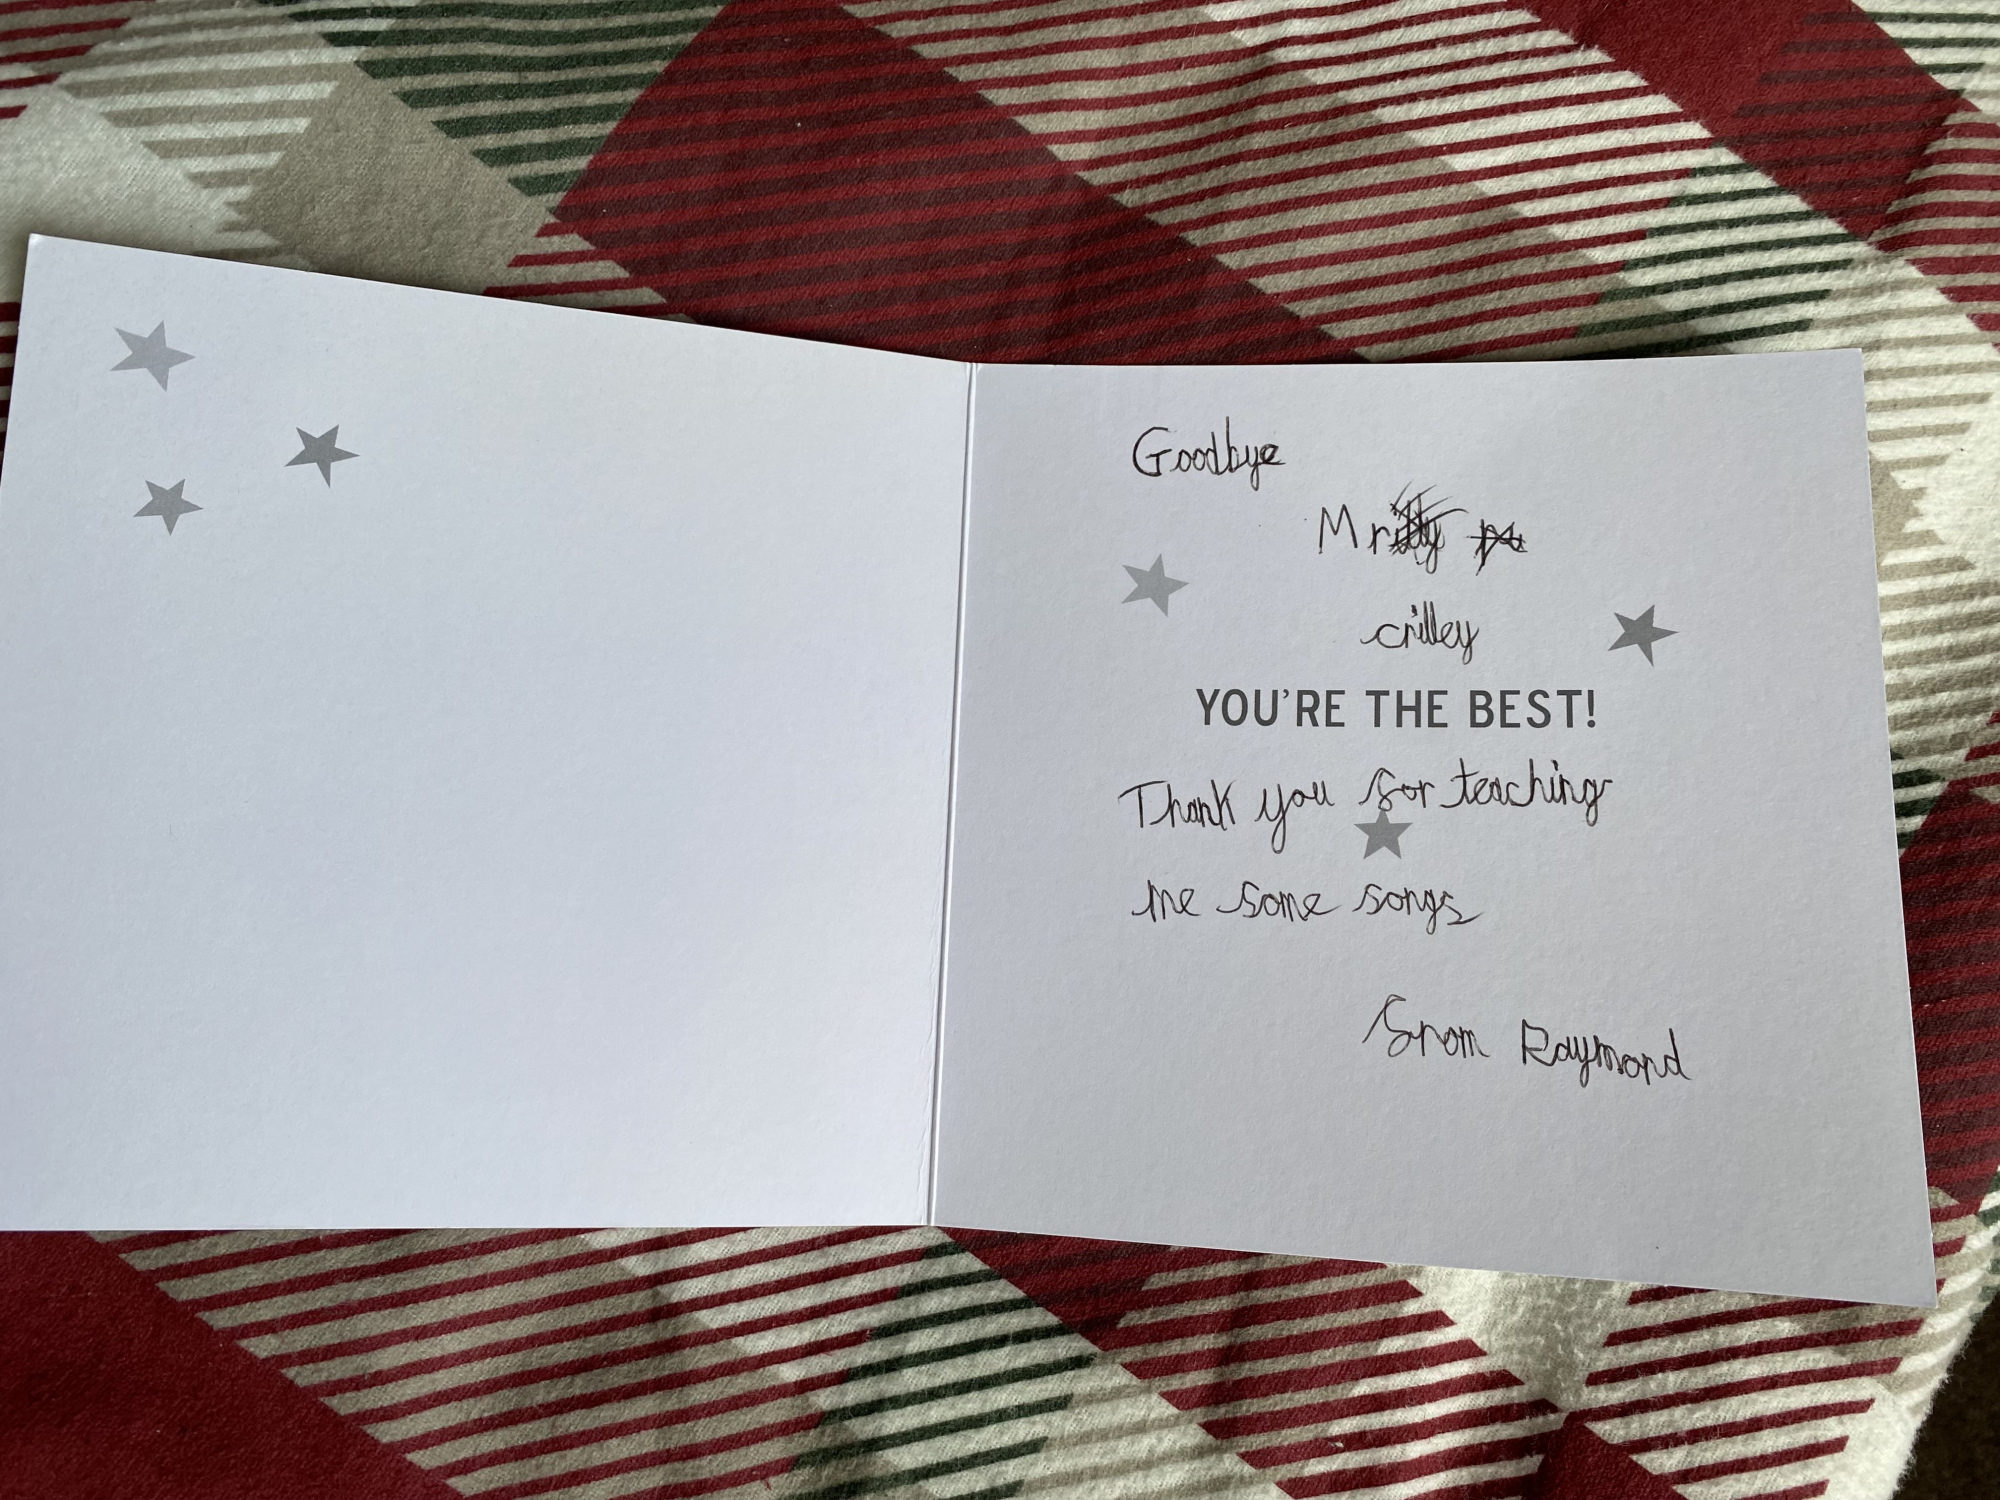 Goodbye
Mr
crilley
YOU'RE THE BEST!
Thank you for teaching
me some songs
from Raymond